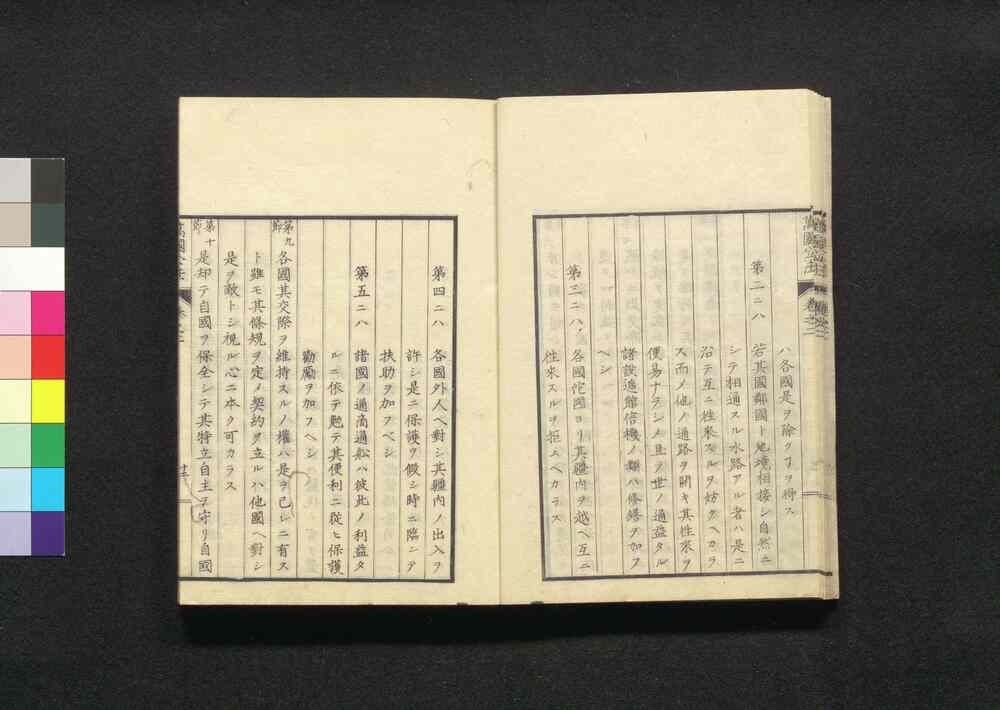 ハ各國是ヲ除クヿヲ得ス
第二ニハ 若其國鄰國ト地境相接シ自然ニ
シテ相通スル水路アル者ハ是ニ
沿テ互ニ往來スルヲ妨クヘカラ
ス而メ他ノ通路ヲ開キ其往來ヲ
便易ナラシメ且ヲ世ノ通益タル
諸設造館信機ノ類ハ修繕ヲ加フ
ヘシ
第三ニハ 各國佗國ヨリ其疆内ヲ越ヘ互ニ
往來スルヲ拒ムヘカラス
第四ニハ 各國外人ヘ對シ其疆内ノ出入ヲ
許シ是ニ保護ヲ假シ時ニ臨ニテ
扶助ヲ加フベシ
第五ニハ 諸國ノ通商通舩ハ彼此ノ利益タ
ルニ依テ勉テ其便利ニ從ヒ保護
勸勵ヲ加フヘシ
第九節 各國其交際ヲ維持スルノ權ハ是ヲ己レニ有ス
ト雖モ其條規ヲ定メ契約ヲ立ルハ他國ヘ對シ
是ヲ敵トシ視ル心ニ本ク可カラス
第十節 是却テ自國ヲ保全シテ其特立自主ヲ守リ自國
萬國公法